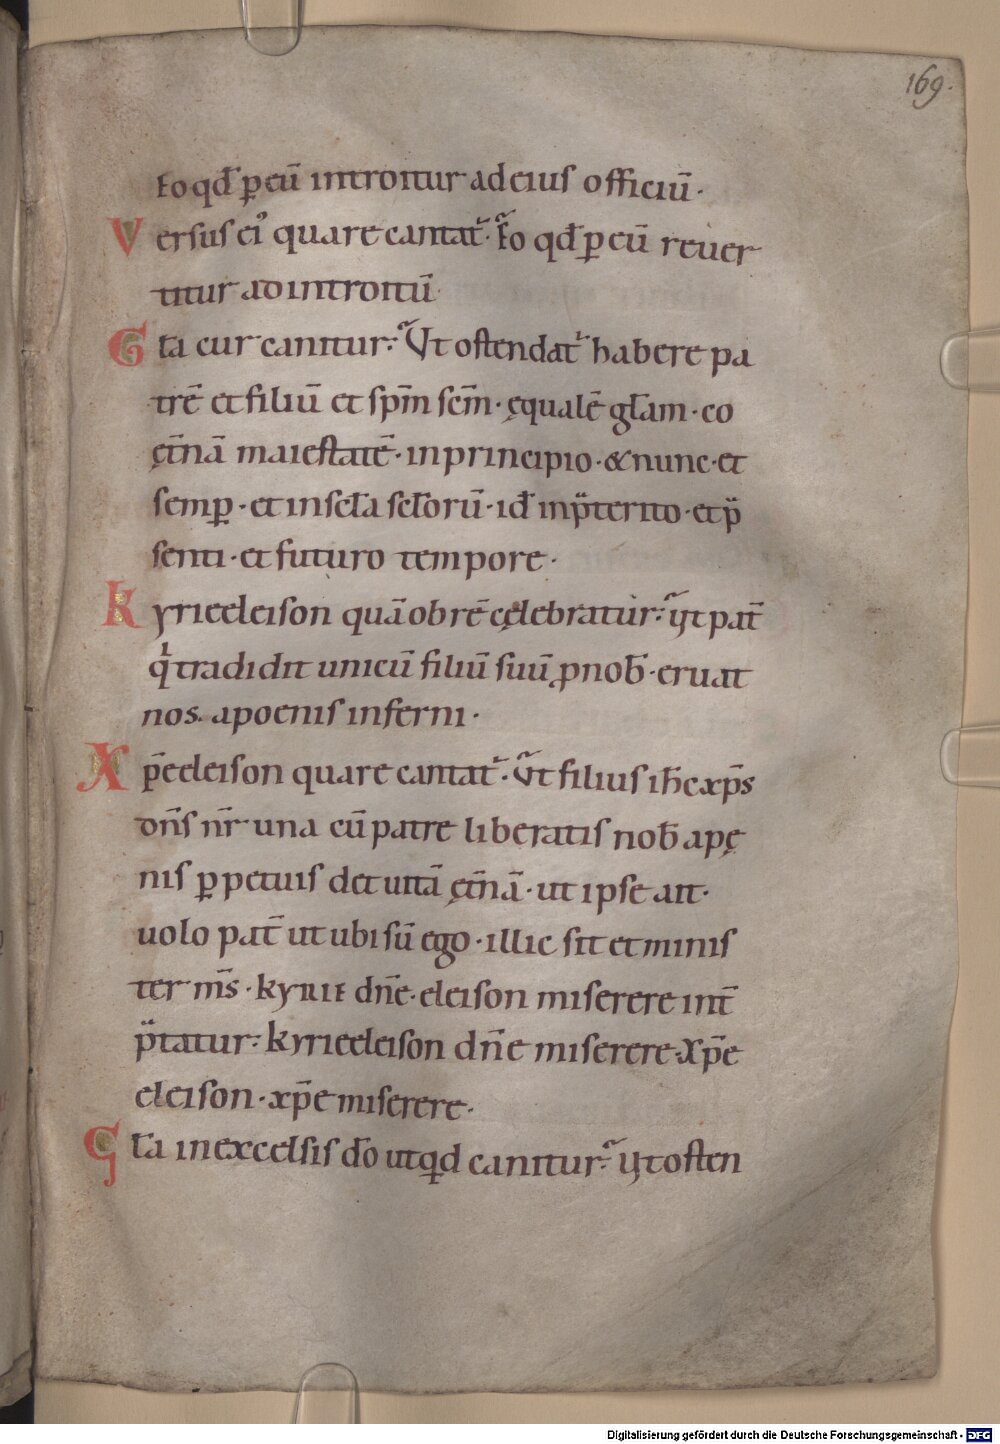 169.
ƚo qđ ꝑ eū introitur ad eius officiū.
Versus ei᾽ quare cantat᷑. ƚo qđ ꝑ eū reuer
titur ad introitū
Gƚa cur canitur. Vt ostendat᷑ habere pa
trē et filiū et sp̄m sc̄m. ęqualē gƚam. co
ęt̄nā maiestatē. in principio. & nunc. et
semꝑ. et in scƚa scƚorū. id̄ in p̄terito. et p̄
senti. et futuro tempore.
Kyrieeleison quā ob rē cęlebratur. ut pat̄
qͥ tradidit unicū filiū suū ꝓ nob̄. eruat
nos. a poenis inferni.
Xp̄eeleison quare cantat᷑. Vt filius ih̄c xp̄s
dn̄s nr̄ una cū patre liberatis nob̄ a pę
nis ꝑpetuis det uitā ęt̄nā. ut ipse ait.
uolo pat̄ ut ubi sū ego. illic sit et minis
ter m̄s. kyrie dn̄e. eleison miserere int̄
p̄tatur. kyrieeleison dn̄e miserere. Xp̄e
eleison. xp̄e miserere.
Gƚa in excelsis dō ut qđ canitur. ut osten
Digitalisierung gefördert durch die Deutsche Forschungsgemeinschaft - DFG